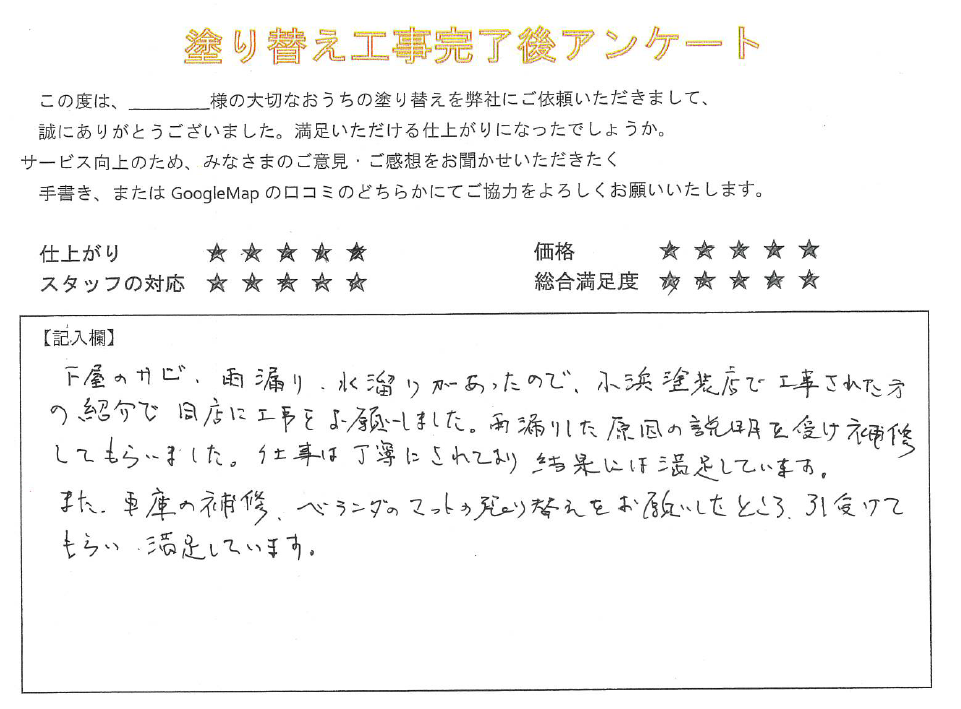 塗り替え工事完了後アンケート
この度は、________様の大切なおうちの塗り替えを弊社にご依頼いただきまして、
誠にありがとうございました。満足いただける仕上がりになったでしょうか。
サービス向上のため、みなさまのご意見・ご感想をお聞かせいただきたく
手書き、または GoogleMap の口コミのどちらかにてご協力をよろしくお願いいたします。
仕上がり ★ ★ ★ ★ ★ 価格 ★ ★ ★ ★ ★
スタッフの対応 ★ ★ ★ ★ ★ 総合満足度 ★ ★ ★ ★ ★
【記入欄】
下屋のサビ、雨漏り、水溜りがあったので、小浜塗装店で工事された方
の紹介で同店に工事をお願いしました。雨漏りした原因の説明を受け補修
してもらいました。仕事は丁寧にされており結果には満足しています。
また、車庫の補修、ベランダのマットの張り替えをお願いしたところ、引受けて
もらい、満足しています。